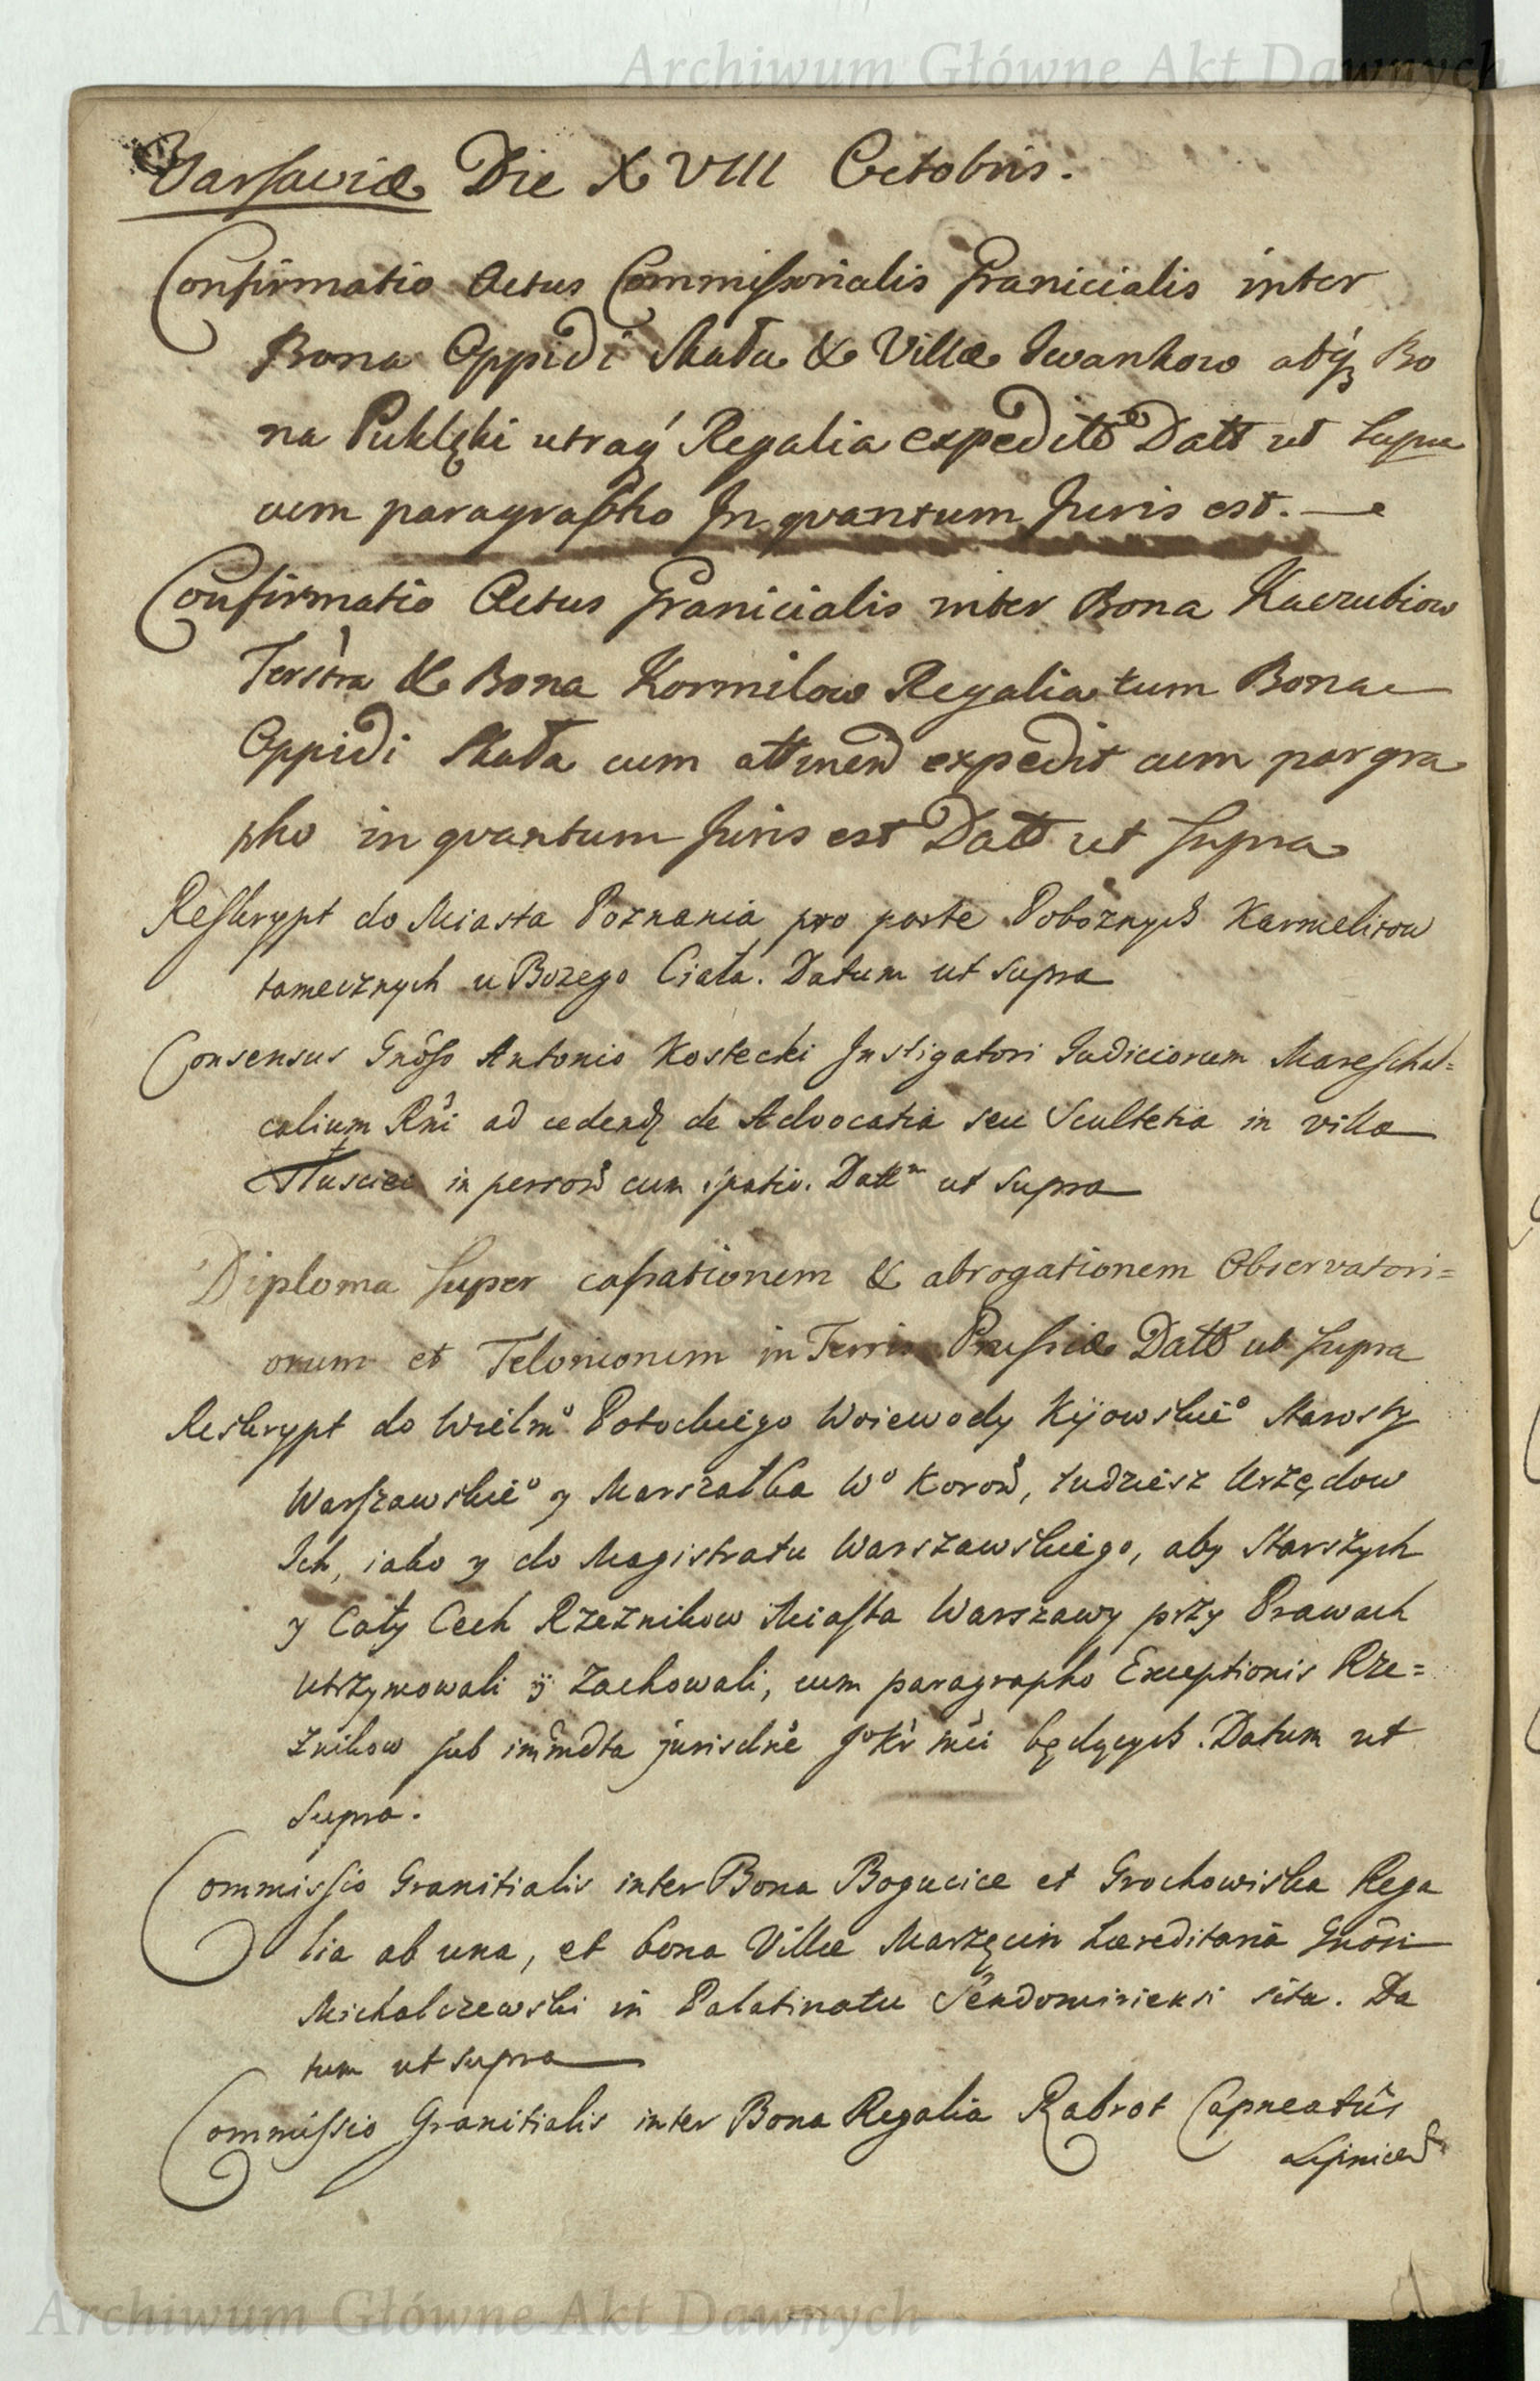 Archiwum Główne Akt Dawnych
Varsaviæ Die XVIII Octobris.
Confirmatio Actus Commissorialis Granicialis inter
Bona Oppidi Skała & Villæ Iwankow abq Bo
na Puklęki utraq Regalia expeditˢ Dattˢ ut supra
cum paragrapho In qvantum Juris est.
Confirmatio Actus Granicialis inter Bona Kaczubiow
Terstra & Bona Kormilow Regalia tum Bona
Oppidi Skała cum attinen expedit cum pargra
pho in qvantum Juris est Datt ut supra
Reskrypt do Miasta Poznania pro parte Pobożnych Karmelitow
tamecznych u Bozego Ciała. Datum ut supra
Consensus Gnoso Antonio Kostecki Instigatori Iudiciorum Mareschal=
calium Rni ad cedend de Advocatia seu Scultetia in villa
Tłusciec in person cum spatio. Dattᵐ ut supra
Diploma super cassationem & abrogationem Observatori=
orum et Telonionum in Terris Prussiæ Datt ut supra
Reskrypt do Wielmº Potockiego Woiewody Kijowskieº Starosty
Warszawskieº y Marszałka Wº Koron, tudziesz Urzędow
Ich, iako y do Magistratu Warszawskiego, aby Starszych
y Cały Cech Rzeznikow Miasta Warszawy przy Prawach
utrzymowali ÿ zachowali, cum paragrapho Exceptionis Rze=
znikow sub immdta jurisdne Jº Kr mci będących. Datum ut
supra.
Commissio Granitialis inter Bona Bogucice et Grochowiska Rega
lia ab una, et bona Villæ Marzęcin hæreditaria Gnosi
Michalczewski in Palatinatu Sendomiriensi sita. Da
tum ut supra
Commissio Granitialis inter Bona Regalia Rabrot Capneatus
Lipnicen
Archiwum Główne Akt Dawnych